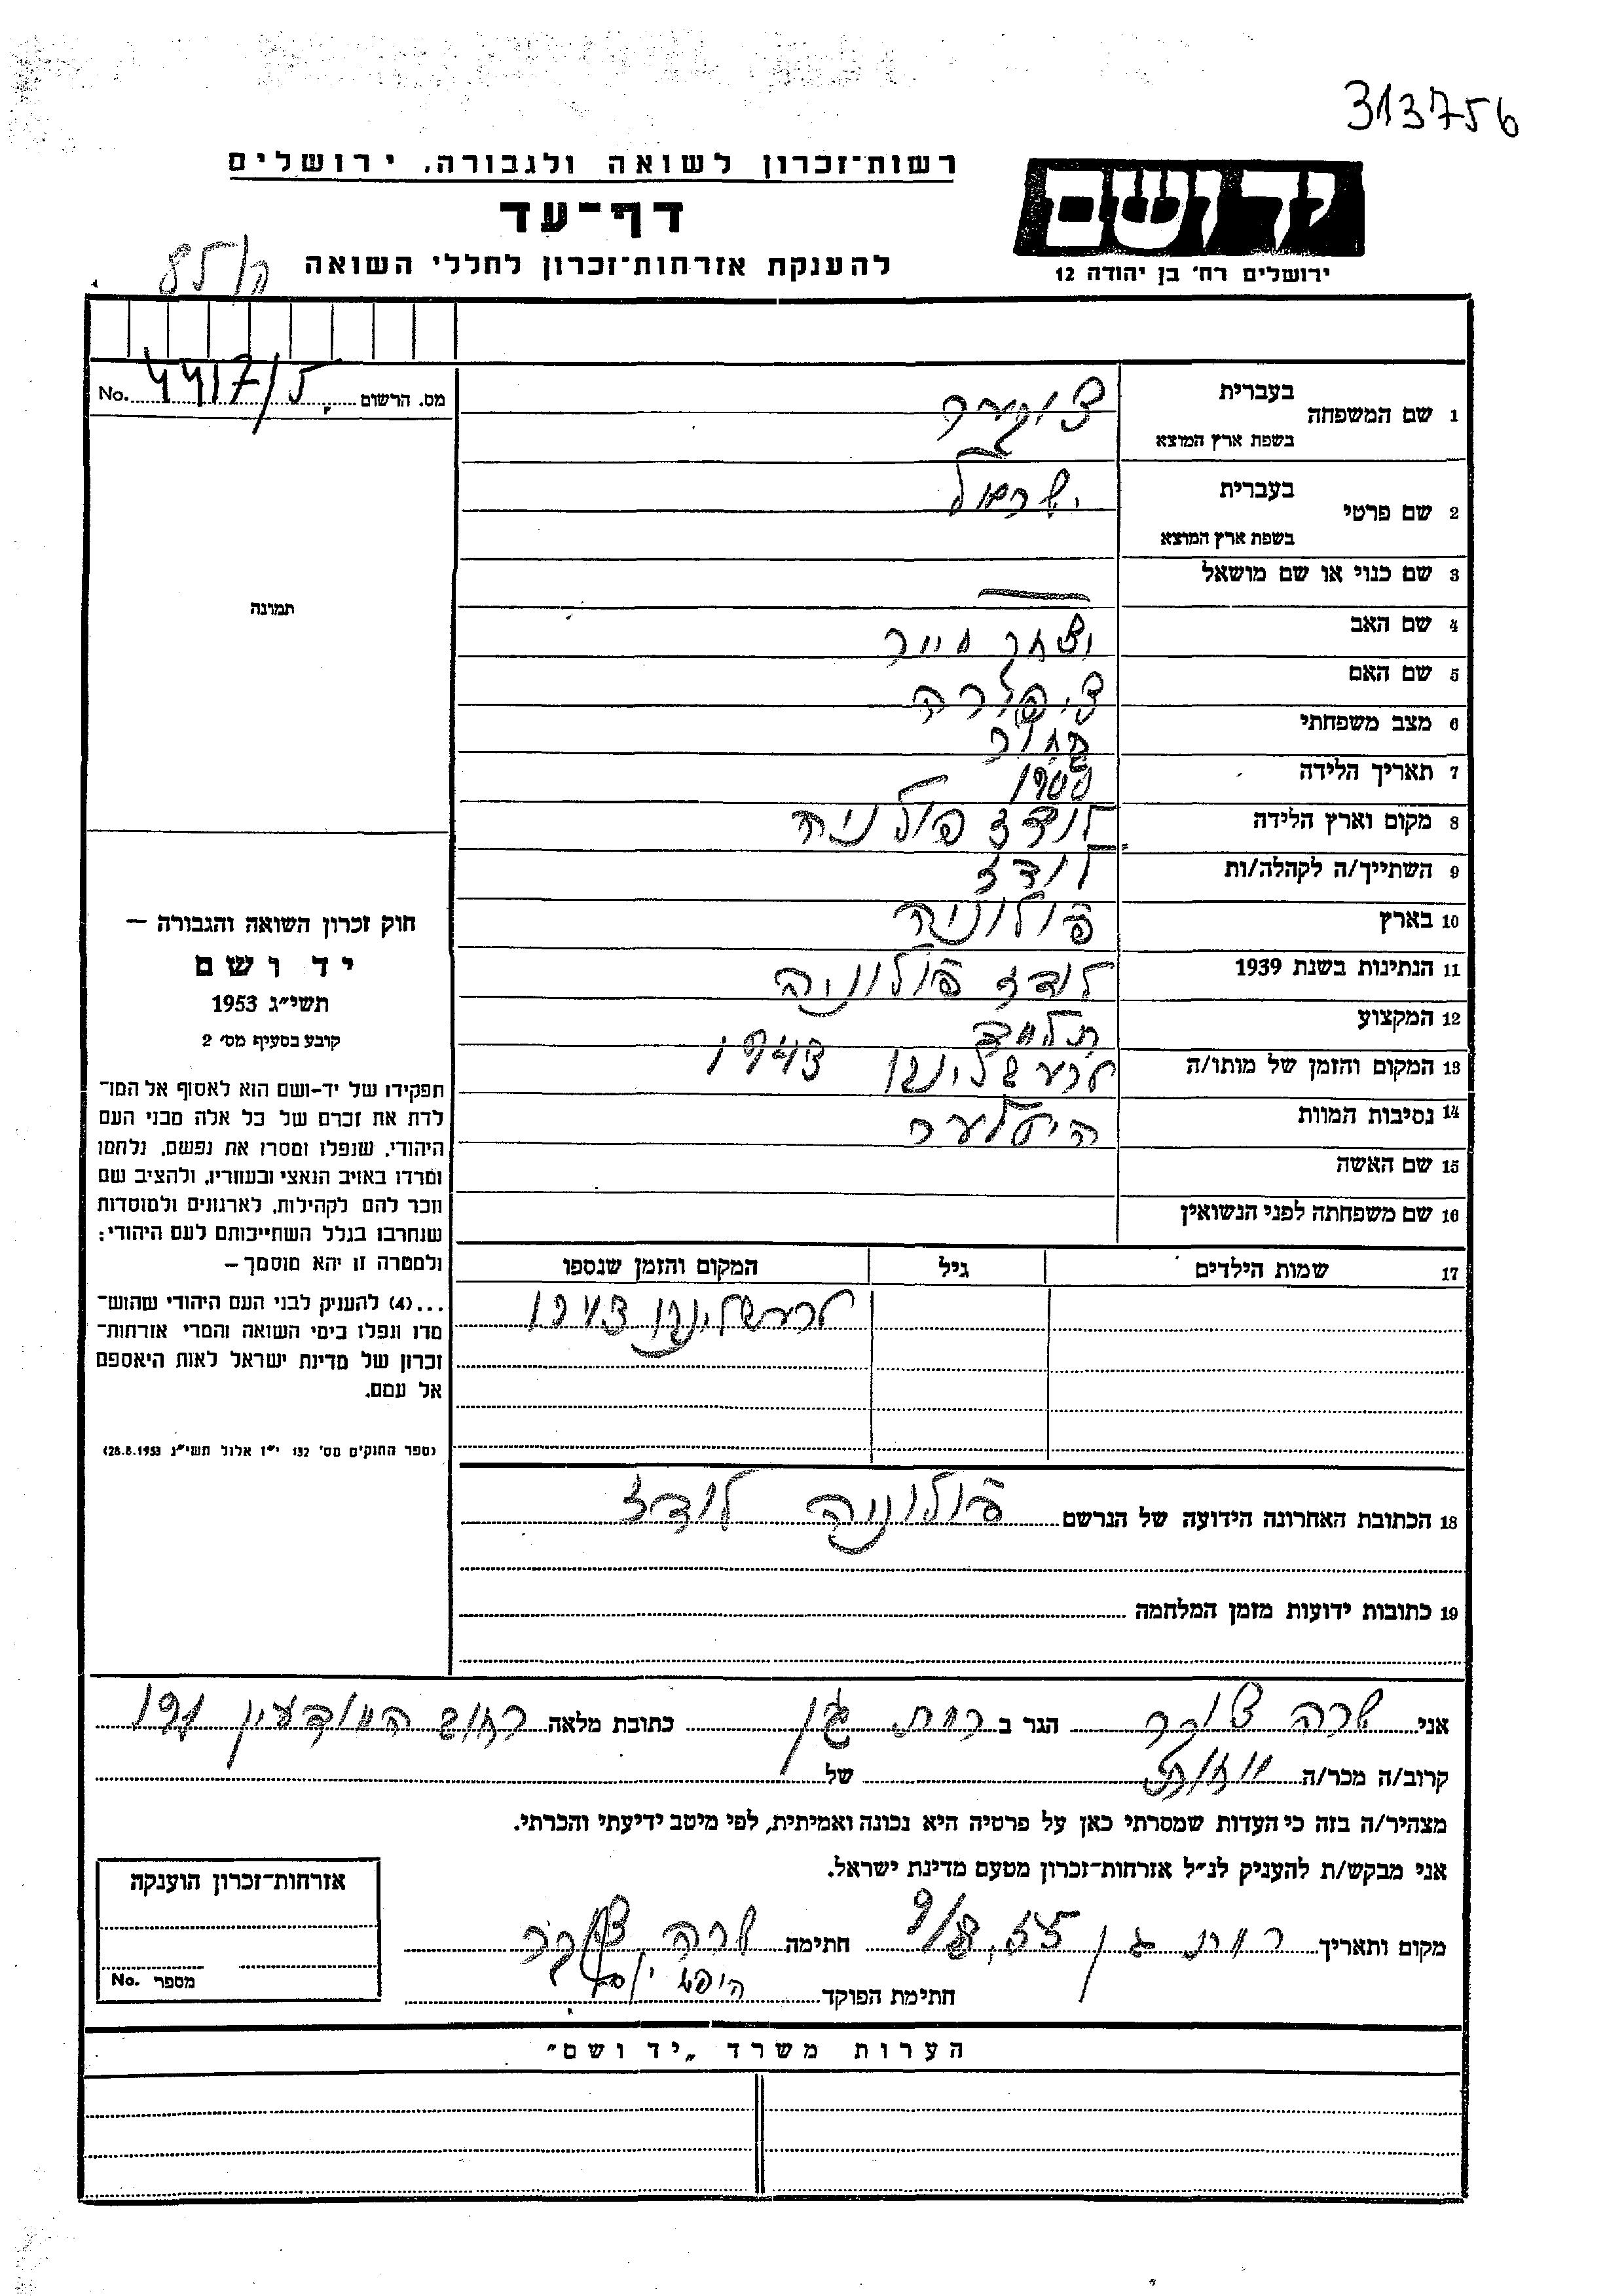 313756
רשות־זכרון לשואה ולגבורה. ירושלים
יד ושם
דף־עד
ירושלים רח' בן יהודה 12
להענקת אזרחות־זכרון לחללי השואה
No. 4417/ מס. הרשום
בעברית
1 שם המשפחה
בשפת ארץ המוצא
בעברית
2 שם פרטי ישראל
בשפת ארץ המוצא
3 שם כנוי או שם מושאל
4 שם האב יצחק מייר
5 שם האם ציפורה
6 מצב משפחתי בחור
7 תאריך הלידה 1900
8 מקום וארץ הלידה לודז פולניה
9 השתייך/ה לקהלה/ות לודז
10 בארץ פולוניה
11 הנתינות בשנת 1939 לודז פולוניה
12 המקצוע
13 המקום והזמן של מותו/ה 1943
14 נסיבות המוות היטלער
15 שם האשה
16 שם משפחתה לפני הנשואין
17 שמות הילדים גיל המקום והזמן שנספו
1943
18 הכתובת האחרונה הידועה של הנרשם פולוניה לודז
19 כתובות ידועות מזמן המלחמה
תמונה
חוק זכרון השואה והגבורה —
יד ושם
תשי"ג 1953
קובע בסעיף מס' 2
תפקידו של יד-ושם הוא לאסוף אל המו־
לדת את זכרם של כל אלה מבני העם
היהודי, שנפלו ומסרו את נפשם, נלחמו
ומרדו באויב הנאצי ובעוזריו, ולהציב שם
וזכר להם לקהילות, לארגונים ולמוסדות
שנחרבו בגלל השתייכותם לעם היהודי;
ולמטרה זו יהא מוסמך —
...(4) להעניק לבני העם היהודי שהוש־
מדו ונפלו בימי השואה והמרי אזרחות־
זכרון של מדינת ישראל לאות היאספם
אל עמם.
(ספר החוקים מס' 132 י"ז אלול תשי"ג 28.8.1953)
אני שרה הגר ב רמת גן כתובת מלאה רחוב המודעין
קרוב/ה מכר/ה של
מצהיר/ה בזה כי העדות שמסרתי כאן על פרטיה היא נכונה ואמיתית, לפי מיטב ידיעתי והכרתי.
אני מבקש/ת להעניק לנ"ל אזרחות־זכרון מטעם מדינת ישראל.
מקום ותאריך רמת גן חתימה שרה
חתימת הפוקד
אזרחות־זכרון הוענקה
No. מספר
הערות משרד „יד ושם"